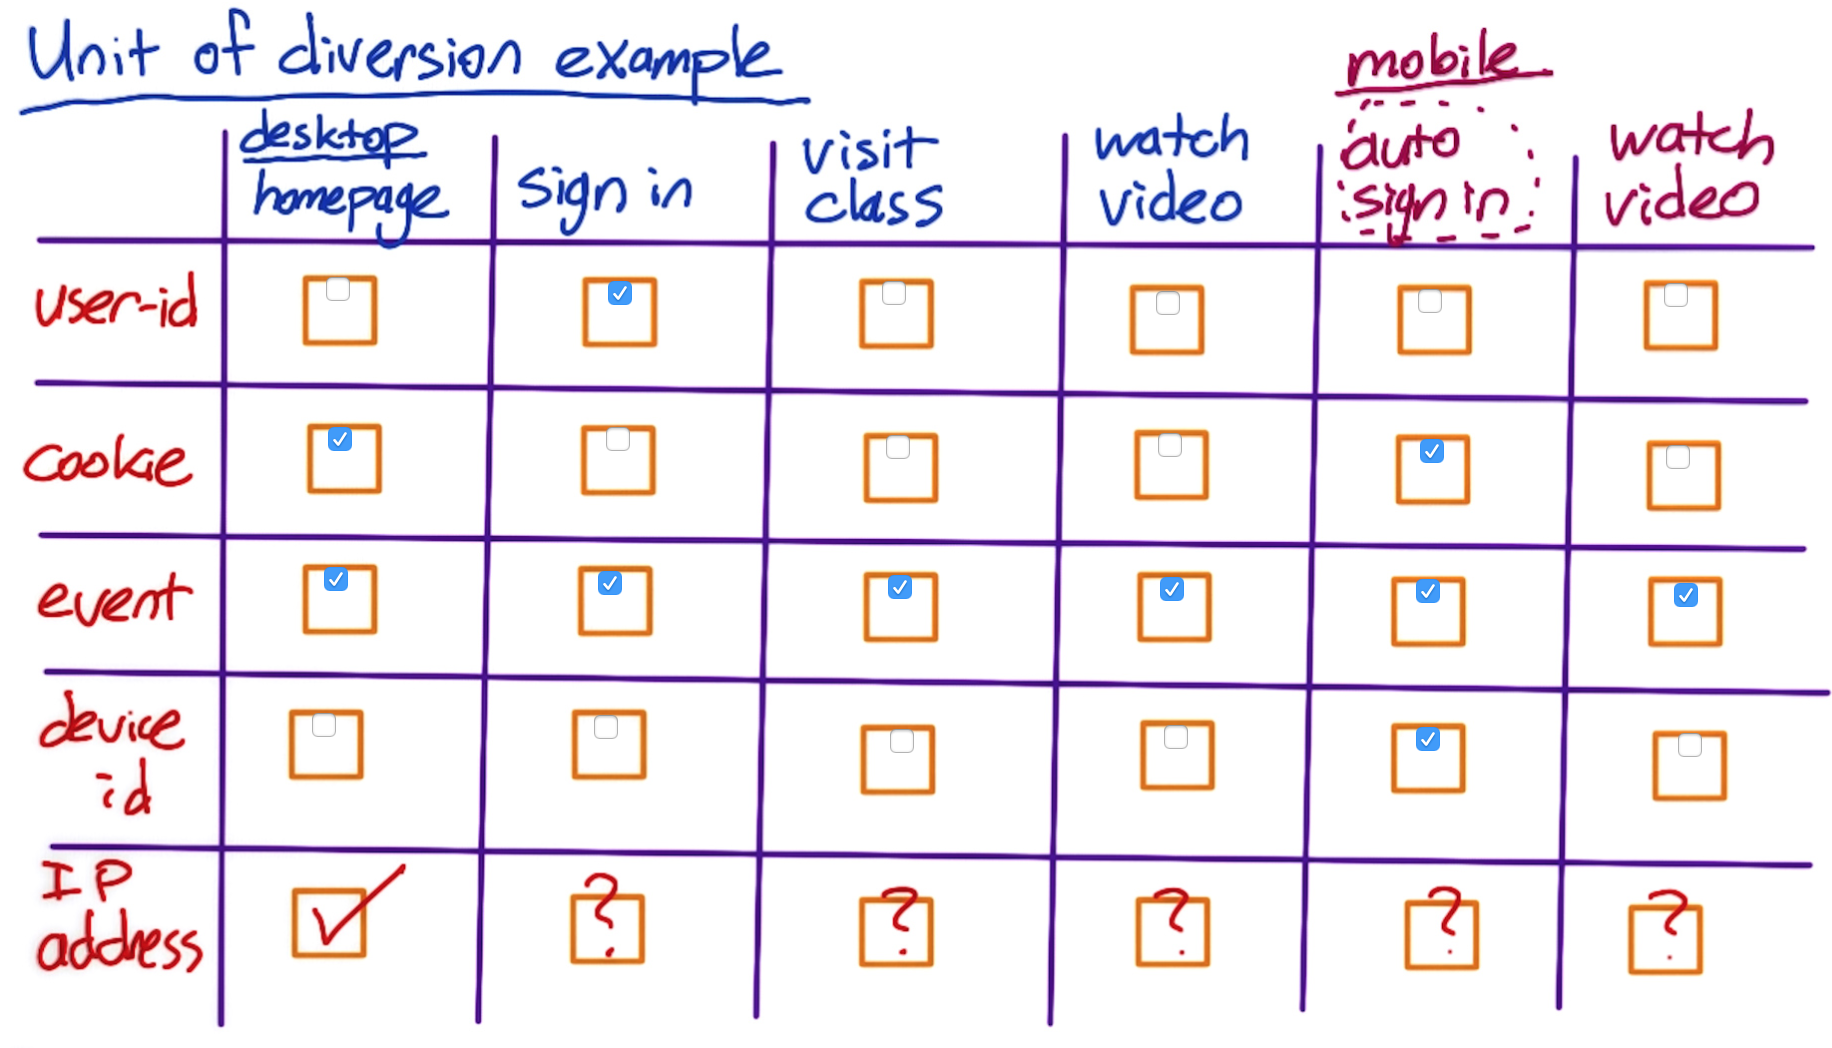 Unit of diversion example
mobile
desktop
homepage
sign in
visit
class
watch
video
auto
sign in
watch
video
user-id
cookie
event
device
id
IP
address
? ? ? ? ?